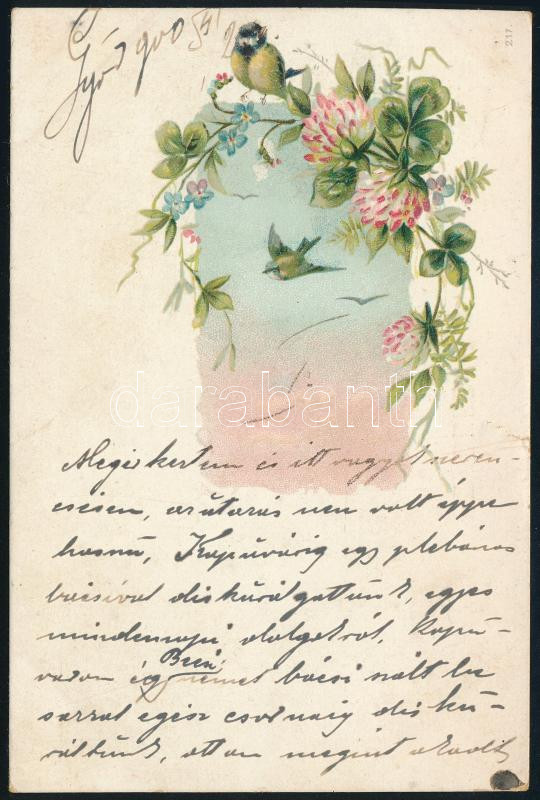 Győr 900
217.
darabanth
Megérkeztem és itt vagyok szeren-
csésen, az utazás nem volt éppe
hosszú, Kapuvárig egy plebános
bácsival diskurálgattunk, egyes
mindennapi dolgokról, Kapu-
váron égy Bécsi német bácsi szállt be
azzal egész csornaig disku-
ráltunk, ottan megint akadt